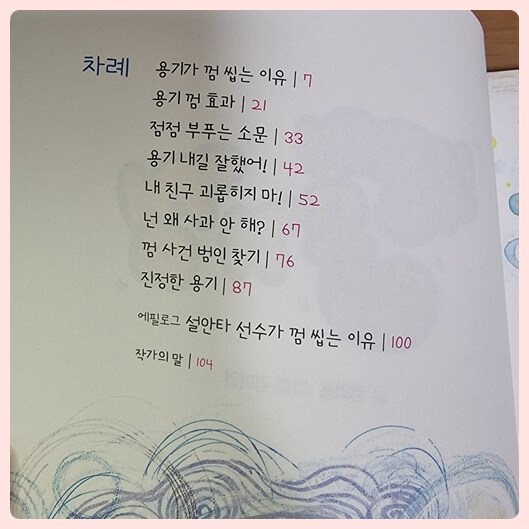 차례
용기가 껌 씹는 이유 | 7
용기 껌 효과 | 21
점점 부푸는 소문 | 33
용기 내길 잘했어! | 42
내 친구 괴롭히지 마! | 52
넌 왜 사과 안 해? | 67
껌 사건 범인 찾기 | 76
진정한 용기 | 87
에필로그 설안타 선수가 껌 씹는 이유 | 100
작가의 말 | 104